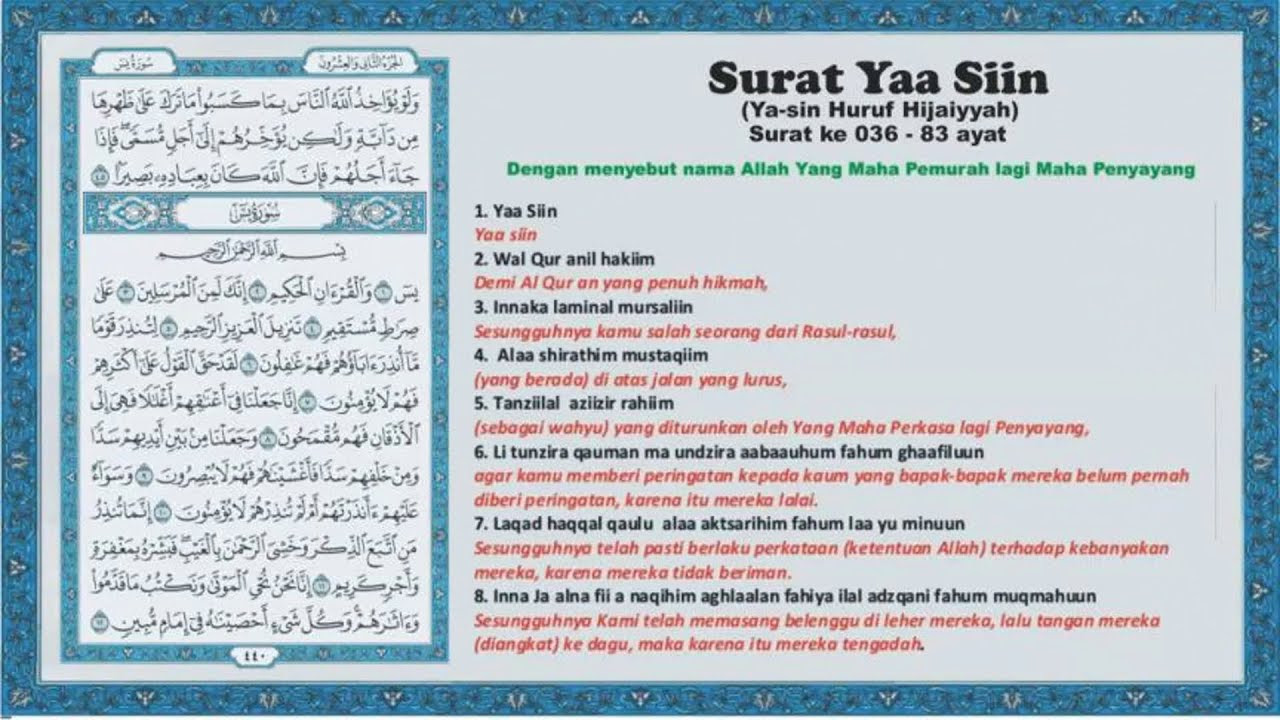 سُورَةُ يسٓ
الجُزْءُ الثَّانِي وَالعِشْرُونَ
وَلَوْ يُؤَاخِذُ ٱللَّهُ ٱلنَّاسَ بِمَا كَسَبُوا۟ مَا تَرَكَ عَلَىٰ ظَهْرِهَا
مِن دَآبَّةٍ وَلَٰكِن يُؤَخِّرُهُمْ إِلَىٰٓ أَجَلٍ مُّسَمًّى ۖ فَإِذَا
جَآءَ أَجَلُهُمْ فَإِنَّ ٱللَّهَ كَانَ بِعِبَادِهِۦ بَصِيرًۢا ٤٥
سُورَةُ يسٓ
بِسْمِ ٱللَّهِ ٱلرَّحْمَٰنِ ٱلرَّحِيمِ
يسٓ ١ وَٱلْقُرْءَانِ ٱلْحَكِيمِ ٢ إِنَّكَ لَمِنَ ٱلْمُرْسَلِينَ ٣ عَلَىٰ
صِرَٰطٍ مُّسْتَقِيمٍ ٤ تَنزِيلَ ٱلْعَزِيزِ ٱلرَّحِيمِ ٥ لِتُنذِرَ قَوْمًا
مَّآ أُنذِرَ ءَابَآؤُهُمْ فَهُمْ غَٰفِلُونَ ٦ لَقَدْ حَقَّ ٱلْقَوْلُ عَلَىٰٓ أَكْثَرِهِمْ
فَهُمْ لَا يُؤْمِنُونَ ٧ إِنَّا جَعَلْنَا فِىٓ أَعْنَٰقِهِمْ أَغْلَٰلًا فَهِىَ إِلَى
ٱلْأَذْقَانِ فَهُم مُّقْمَحُونَ ٨ وَجَعَلْنَا مِنۢ بَيْنِ أَيْدِيهِمْ سَدًّا
وَمِنْ خَلْفِهِمْ سَدًّا فَأَغْشَيْنَٰهُمْ فَهُمْ لَا يُبْصِرُونَ ٩ وَسَوَآءٌ
عَلَيْهِمْ ءَأَنذَرْتَهُمْ أَمْ لَمْ تُنذِرْهُمْ لَا يُؤْمِنُونَ ١٠ إِنَّمَا تُنذِرُ
مَنِ ٱتَّبَعَ ٱلذِّكْرَ وَخَشِىَ ٱلرَّحْمَٰنَ بِٱلْغَيْبِ ۖ فَبَشِّرْهُ بِمَغْفِرَةٍ
وَأَجْرٍ كَرِيمٍ ١١ إِنَّا نَحْنُ نُحْىِ ٱلْمَوْتَىٰ وَنَكْتُبُ مَا قَدَّمُوا۟
وَءَاثَٰرَهُمْ ۚ وَكُلَّ شَىْءٍ أَحْصَيْنَٰهُ فِىٓ إِمَامٍ مُّبِينٍ ١٢
٤٤٠
Surat Yaa Siin
(Ya-sin Huruf Hijaiyyah)
Surat ke 036 - 83 ayat
Dengan menyebut nama Allah Yang Maha Pemurah lagi Maha Penyayang
1. Yaa Siin
Yaa siin
2. Wal Qur anil hakiim
Demi Al Qur an yang penuh hikmah,
3. Innaka laminal mursaliin
Sesungguhnya kamu salah seorang dari Rasul-rasul,
4. Alaa shirathim mustaqiim
(yang berada) di atas jalan yang lurus,
5. Tanziilal aziizir rahiim
(sebagai wahyu) yang diturunkan oleh Yang Maha Perkasa lagi Penyayang,
6. Li tunzira qauman ma undzira aabaauhum fahum ghaafiluun
agar kamu memberi peringatan kepada kaum yang bapak-bapak mereka belum pernah
diberi peringatan, karena itu mereka lalai.
7. Laqad haqqal qaulu alaa aktsarihim fahum laa yu minuun
Sesungguhnya telah pasti berlaku perkataan (ketentuan Allah) terhadap kebanyakan
mereka, karena mereka tidak beriman.
8. Inna Ja alna fii a naqihim aghlaalan fahiya ilal adzqani fahum muqmahuun
Sesungguhnya Kami telah memasang belenggu di leher mereka, lalu tangan mereka
(diangkat) ke dagu, maka karena itu mereka tengadah.